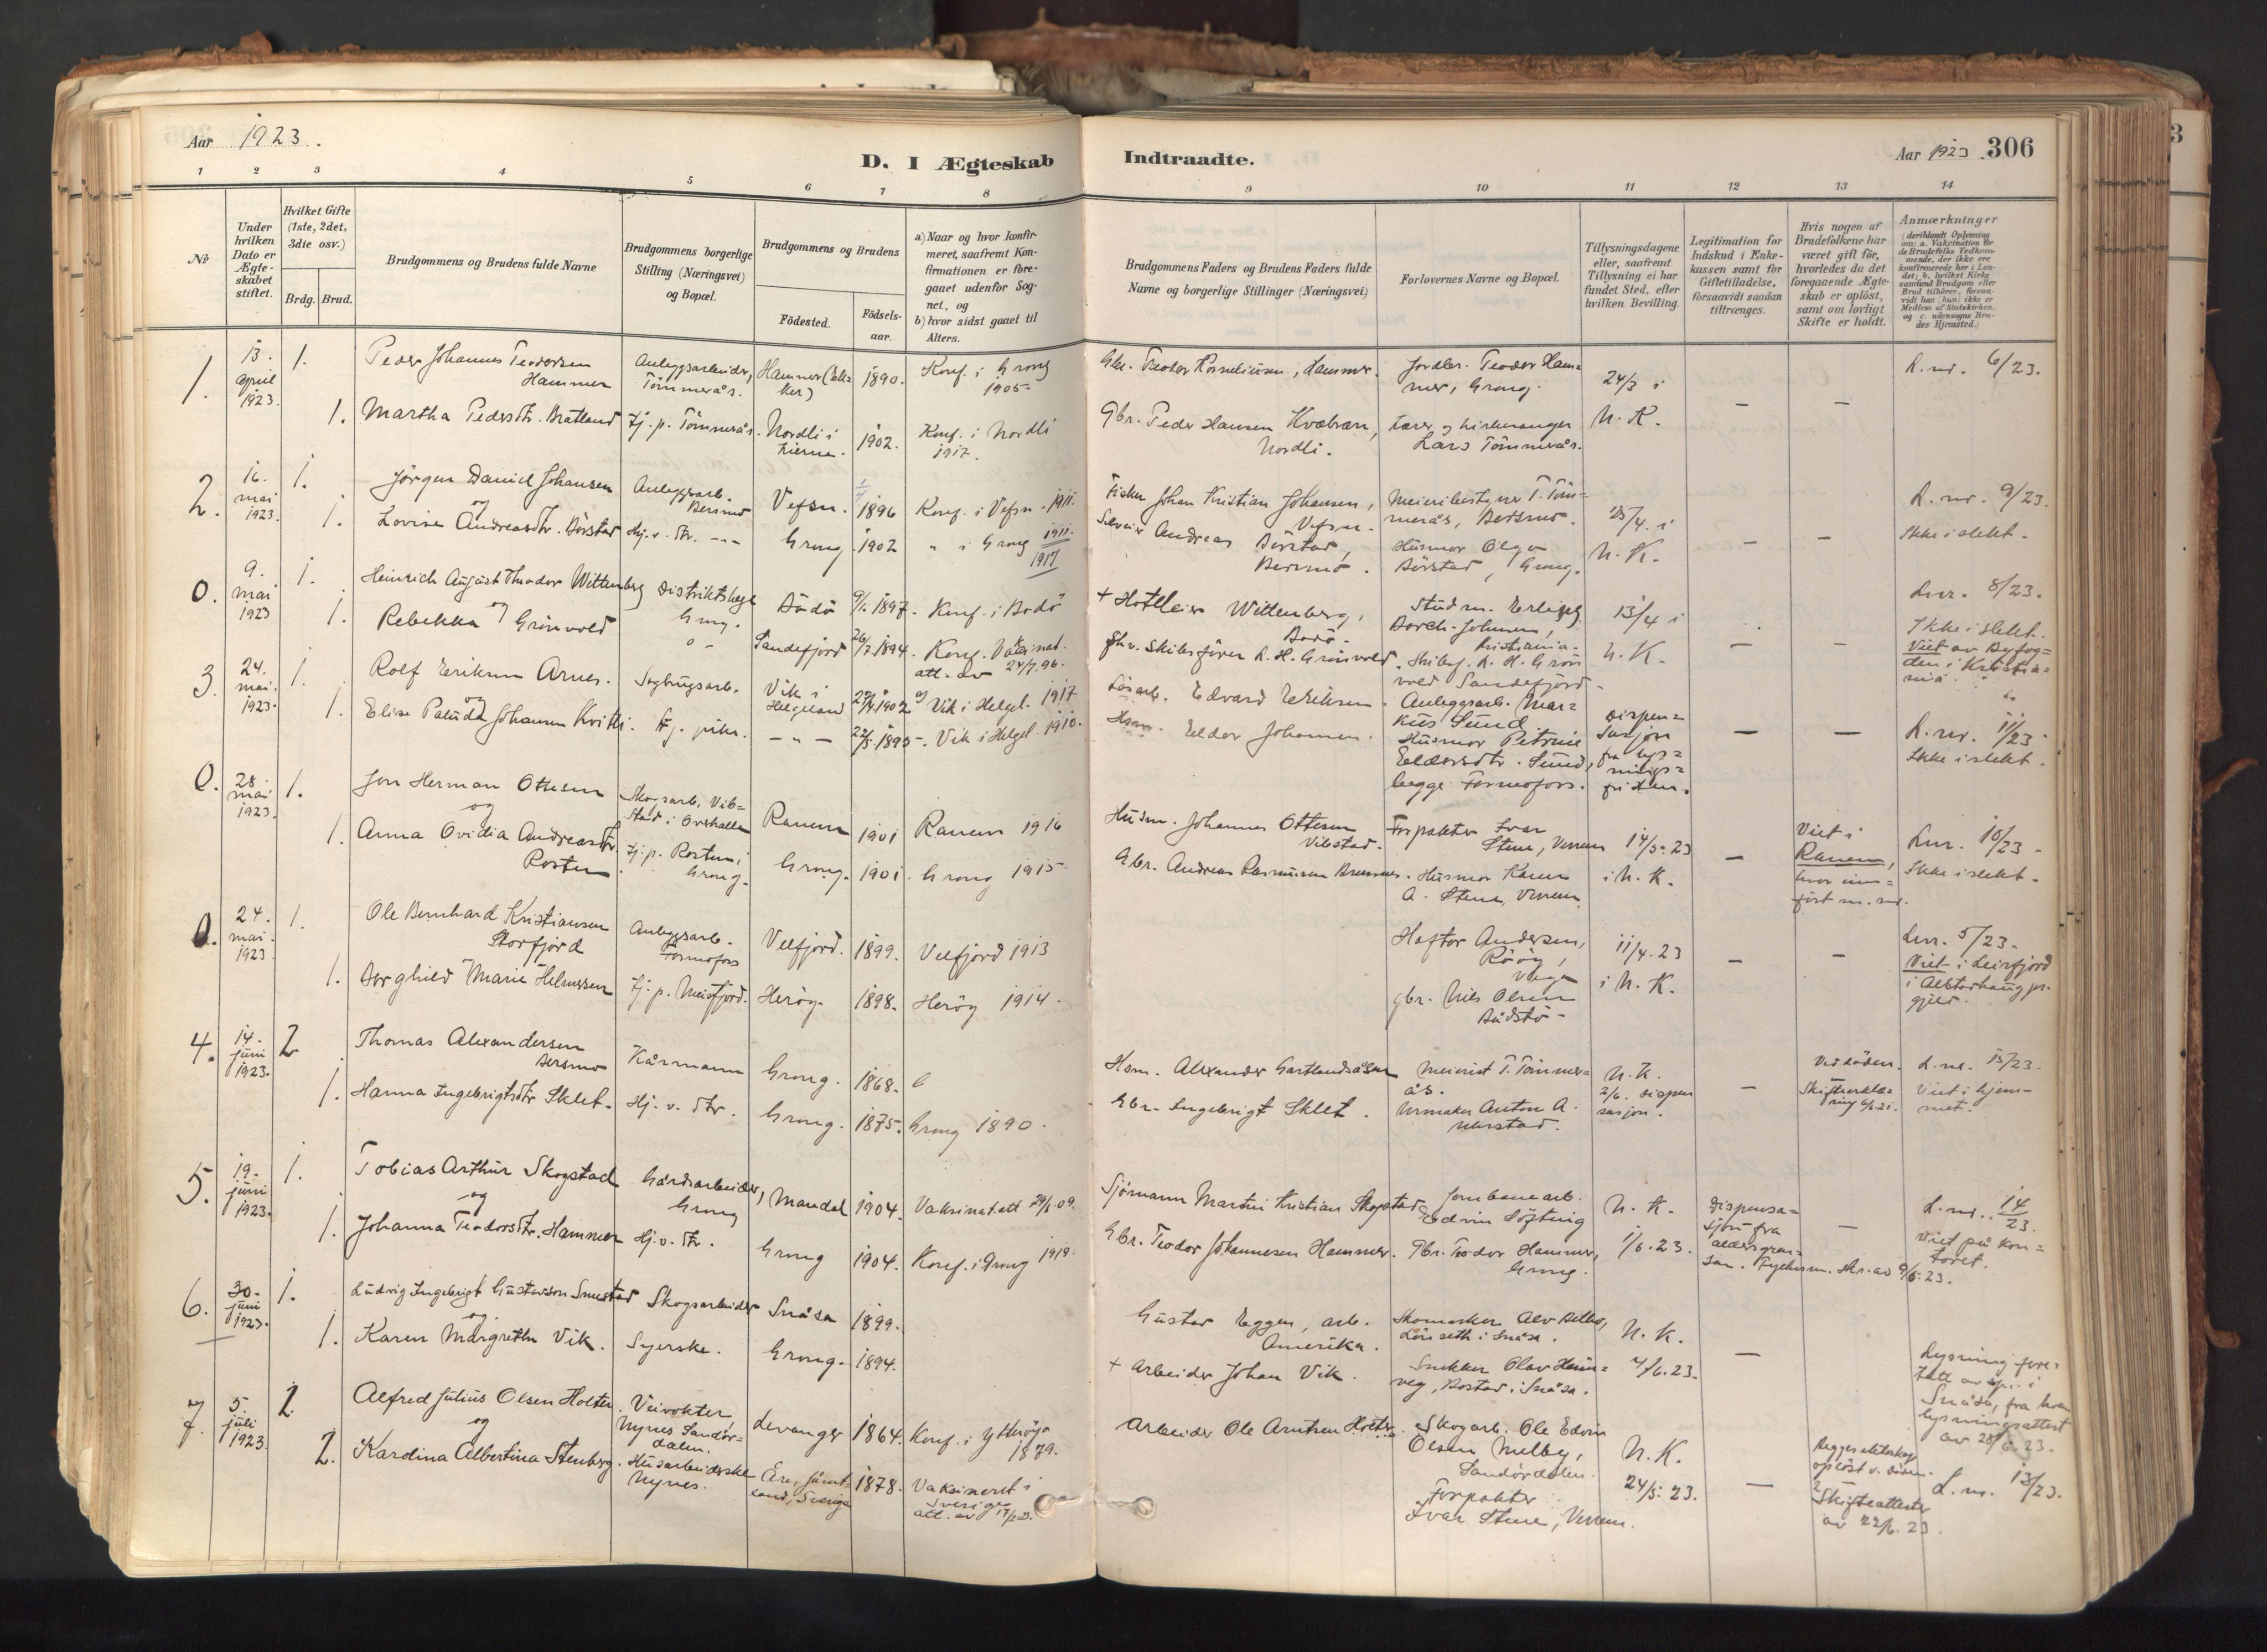 Aar 1923.
D. I Ægteskab Indtraadte.
Aar 1923. 306
1 2 3 4 5 6 7 8 9 10 11 12 13 14
No
Under hvilken Dato er Ægte-skabet stiftet.
Hvilket Gifte (1ste, 2det, 3die osv.)
Brdg. Brud.
Brudgommens og Brudens fulde Navne
Brudgommens borgerlige Stilling (Næringsvei) og Bopæl.
Brudgommens og Brudens
Födested.
Födsels-aar.
a) Naar og hvor konfir-meret, saafremt Kon-firmationen er fore-gaaet udenfor Sog-net, og
b) hvor sidst gaaet til Alters.
Brudgommens Faders og Brudens Faders fulde Navne og borgerlige Stillinger (Næringsvei)
Forlovernes Navne og Bopæl.
Tillysningsdagene eller, saafremt Tillysning ei har fundet Sted, efter hvilken Bevilling.
Legitimation for Indskud i Enke-kassen samt for Giftetilladelse, forsaavidt saadan tiltrænges.
Hvis nogen af Brudefolkene har været gift för, hvorledes da det foregaaende Ægte-skab er oplöst, samt om lovligt Skifte er holdt.
Anmærkninger
(deriblandt Oplysning om: a. Vakcination for de Brudefolks Vedkom-mende, der ikke ere konfirmerede her i Lan-det; b. hvilket Kirke-samfund Brudgom eller Brud tilhörer, forsaa-vidt han (hun) ikke er Medlem af Statskirken, og c. udensogns Bru-des Hjemsted.)
1. 13. april 1923. 1. Peder Johannes Teodorsen Hammer Anleggsarbeider, Tömmerås. Hammer 1890. Konf. i Grong 1905. Gbr. Teodor Korneliusen, Hammer. Jordbr. Teodor Ham=mer, Grong. 24/3 i N. K. — — L. nr. 6/23.
1. Martha Pedersdtr. Bratland Tj. p. Tömmerås. Nordli i Lierne. 1902. Konf. i Nordli 1917. Gbr. Peder Hansen Kvæbæn, Nordli. Lærer og kirkesanger Lars Tömmerås.
2. 16. mai 1923. 1. Jörgen Daniel Johansen Anleggsarb. Bersmo Vefsn. 1896 Konf. i Vefsn. 1911. Fisker Johan Kristian Johansen, Vefsn. Meieribestyrer T. Töm=merås, Bersmo. 25/4. i N. K. — — L. nr. 9/23.
og
1. Lovise Andreasdtr. Börstad Hj. v. dtr. -„- Grong 1902 „ i Grong 1917 Andreas Börstad, Bersmo. Husmor Olga Börstad, Grong. Ikke i slekt.
0. 9. mai 1923 1. Heinrich August Theodor Wittenberg Distriktslæge Grong. Bodö 9/1. 1897. Konf. i Bodö + Hotelleier Wittenberg, Bodö. Stud m. Erling Borch-Johnsen, Kristiania. 13/4 i N. K. — — Lnr. 8/23.
og
1. Rebekka Grönvold Sandefjord 1894. Konf. Vaksinat. att. av 24/7.96. Fhv. Skibsförer R. H. Grönvold. Skibsf. R. H. Grön vold Sandefjord Ikke i slekt. Viet av Byfog=den i Kristia=nia.
3. 24. mai. 1923. 1. Rolf Eriksen Arnes. Sagbrugsarb. Vik i Helgeland 1902 Vik i Helgel. 1917 Lösarb. Edvard Eriksen. Anleggsarb. Mar=kus Sund. Dispen=sasjon fra lys=nings=fristen. — — L. nr. 11/23
og
1. Elise Paluda Johansen Kvitli. Tj. pike. — „ — 22/5. 1895. Vik i Helgel. 1910. Hsm. Eldor Johansen. Husmor Petrine Eldorsdtr. Sund, begge Formofors. Ikke i slekt.
0. 28. mai 1923. 1. Jon Herman Ottesen Skogsarb. Vib=stad i Overhalla Ranem 1901 Ranem 1916 Husm. Johannes Ottesen Vibstad. Forpakter Ivar Stene, Verrem 14/5. 23 i N. K. — Viet i Ranem, hvor inn=fört m. nr. Lnr. 10/23
og
1. Anna Ovidia Andreasdtr. Rosten Tj. p. Rosten i Grong. Grong. 1901. Grong 1915. Gbr. Andreas Rasmusen Bremnes. Husmor Karen A. Stene, Verrem. Ikke i slekt.
0. 24. mai. 1923 1. Ole Bernhard Kristiansen Storfjord Anleggsarb. Formofors Velfjord. 1899. Velfjord 1913 Haftor Andersen, Röög, Vega 11/4. 23 i N. K. — — Lnr. 5/23.
1. Borghild Marie Helmersen Tj. p. Meisfjord. Heröy. 1898. Heröy 1914. gbr. Nils Olsen Bådstö Viet i Leirfjord i Alstahaug pr.gjeld.
4. 14. juni 1923. 2 Thomas Alexandersen Bersmo Kårmann Grong. 1868. Hsm. Alexander Gartlandsåsen Meierist T. Tömmer=ås. N. K. 2/6. dispensasjon. — Ved döden. Skifteerklæ=ring 6/6 21. L. nr. 15/23.
1. Hanna Ingebrigtsdtr Sklet. Hj. v. dtr. Grong. 1875. Grong 1890. Gbr. Ingebrigt Sklet. Urmaker Anton A. Viet i hjem=met.
5. 19. juni 1923. 1. Tobias Arthur Skogstad Gårdsarbeider, Grong Mandal 1904. Vaksinat.att 29/6.09. Sjömann Martin Kristian Skogstad Jernbanearb. Edvin Söftnig N. K. 1/6. 23. Dispensa=sjon fra aldersgren=sen. Fylkesm. skr. av 9/6. 23. — L. nr. 14/23.
og
1. Johanna Teodorsdtr. Hammer Hj. v. dtr. Grong 1904. Konf. i Grong 1919. Gbr. Teodor Johannesen Hammer. Gbr. Teodor Hammer, Grong. Viet på kon=toret.
6. 30. juni 1923. 1. Ludvig Ingebrigt Gustavson Smestad Skogsarbeider Snåsa 1899. Gustav Eggen, arb. Amerika. Skomaker Alv Lönseth i Snåsa. N. K. 7/6. 23. —
og
1. Karen Margrethe Vik. Syerske. Grong. 1894. + Arbeider Johan Vik. Snekker Olav Heim=veg, Bostad i Snåsa. Lysning fore=tatt av spr. i Snåsa, fra hvem lysningsattest av 28/6. 23.
7. 5. juli 1923. 2. Alfred Julius Olsen Holter Veivokter, Nynes Sandör=dalen. Levanger 1864. Konf. i Ytteröya 1879. Arbeider Ole Arntsen Holter. Skogarb. Ole Edvin Olsen Melby, Sandördalen. N. K. 24/5. 23. — Begges ekteskap oplöst v. döden. 2 Skifteattester av 22/6. 23. L. nr. 13/23.
og
2. Karolina Albertina Stenberg. Husarbeiderske Nynes. Åre, Jämt=land, Sverige 1878. Vaksinert i Sverige att. av Forpakter Ivar Stene, Verrem.